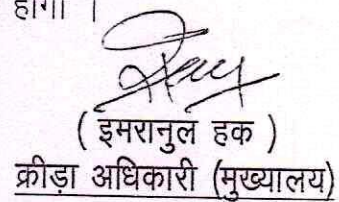 होगा ।
( इमरानुल हक )
क्रीड़ा अधिकारी (मुख्यालय)